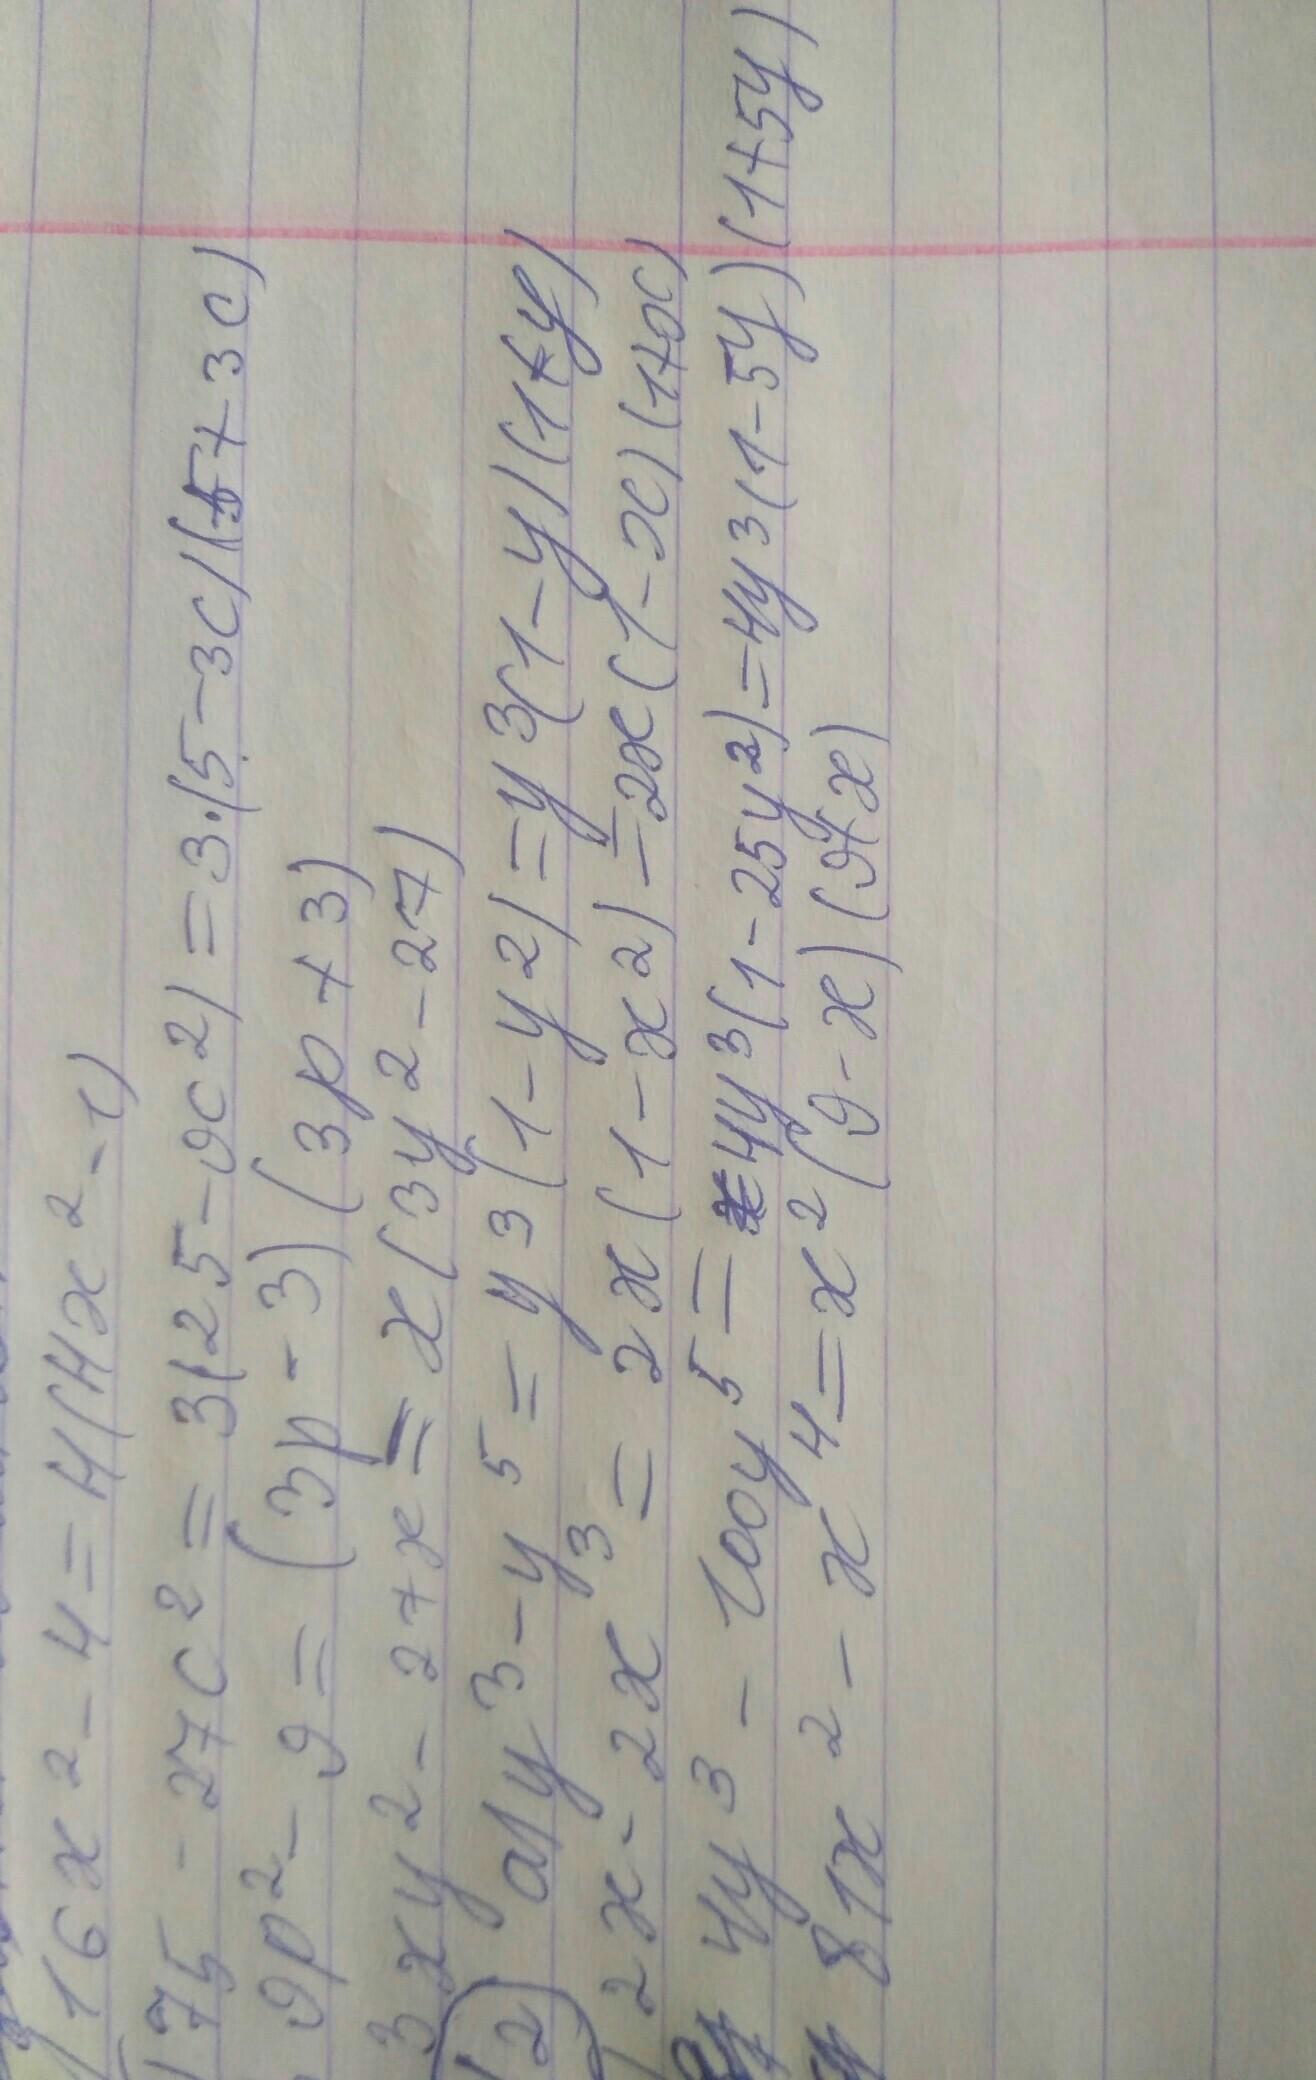 16x² - 4 = 4(4x² - 1)
75 - 27c² = 3(25 - 9c²) = 3·(5 - 3c)(5 + 3c)
9p² - 9 = (3p - 3)(3p + 3)
3xy² - 27x = x(3y² - 27)
2) а) y³ - y⁵ = y³(1 - y²) = y³(1 - y)(1 + y)
2x - 2x³ = 2x(1 - x²) = 2x(1 - x)(1 + x)
4y³ - 100y⁵ = 4y³(1 - 25y²) = 4y³(1 - 5y)(1 + 5y)
81x² - x⁴ = x²(9 - x)(9 + x)